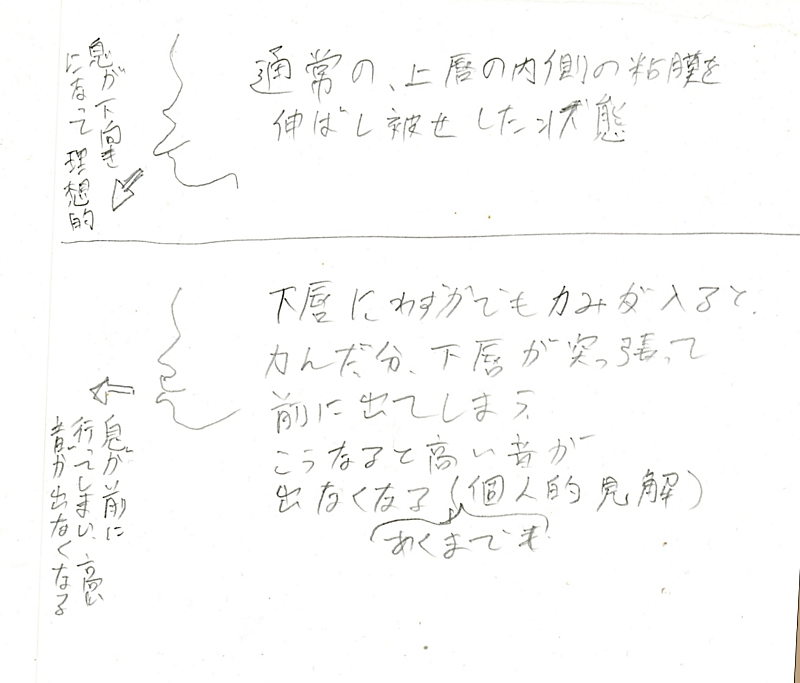 通常の、上唇の内側の粘膜を
伸ばし被せした状態
息が下向き
になって理想的
下唇にわずかでも力みが入ると、
力んだ分、下唇が突っ張って
前に出てしまう、
こうなると高い音が
出なくなる(個人的見解)
あくまでも
息が前に
行ってしまい、高い
音が出なくなる